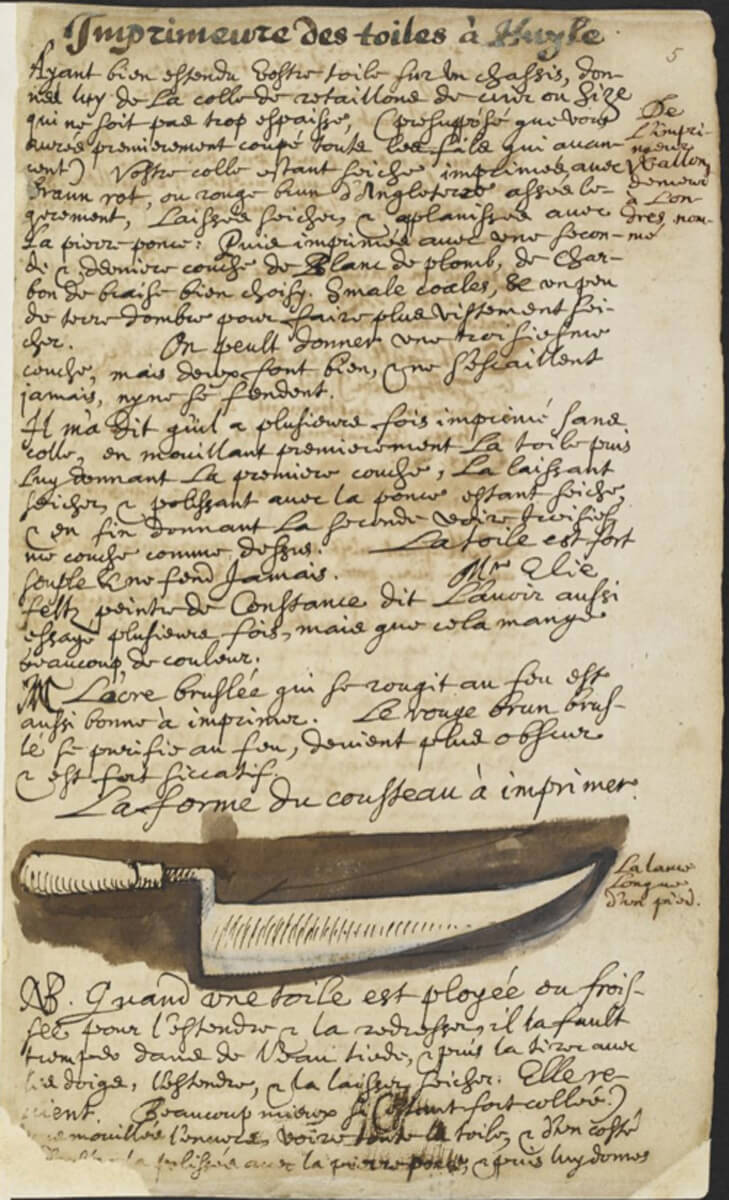 Imprimeure des toiles à Huyle.
5
Ayant bien estendu vostre toile sur un chassis, don-
nez luy de La colle de retaillons de cuir ou size
qui ne soit pas trop espaisse, (presupposé que vous
aurés premierement coupé touts les fils qui auan-
cent) Vostre colle estant seiche imprimes auec
braun rot, ou rouge brun d'Angleterre assés le-
gerement, Laissés seicher, & applanissés auec
La pierre ponce: Puis imprimés auec une secon-
de & derniere couche de Blanc de plomb, de char-
bon de braise bien choisy. Smale coales, & un peu
de terre dombre pour faire plus vistement sei-
cher. On peult donner une troisiesme
couche, mais deux font bien, & ne s'escaillent
jamais, ny ne se fendent.
De
L'impri-
meur
Wallon
demeur
à Lon-
dres, nom-
mé
Il m'a dit qu'il a plusieurs fois imprimé sans
colle, en mouillant premierement La toile puis
Luy donnant La premiere couche, La laissant
seicher, & polissant auec la ponce estant seiche,
& en fin donnant La seconde voire troisies-
me couche comme dessus. La toile est fort
souple & ne fend Jamais. Mr Elie
felt, peintre de Constance dit L'auoir aussi
essayé plusieurs fois, mais que cela mange
beaucoup de couleur.
L'ocre bruslée qui se rougit au feu est
aussi bonne à imprimer. Le rouge brun brus-
lé se purifie au feu, deuient plus obscur
& est fort siccatif.
La forme du cousteau à imprimer.
La lame
Longue
d'un pied.
NB. Quand une toile est ployée ou frois-
sée pour l'estendre & la redresser, il la fault
tremper dans de l'eau tiede, & puis la tirer auec
les doigs, l'estendre, & la laisser seicher. Elle re-
uient. Beaucoup mieux si (estant fort collée)
mouillée l'enuers, voire toute la toile, & d'un costé
la polissés auec la pierre ponce, & puis luy donnes